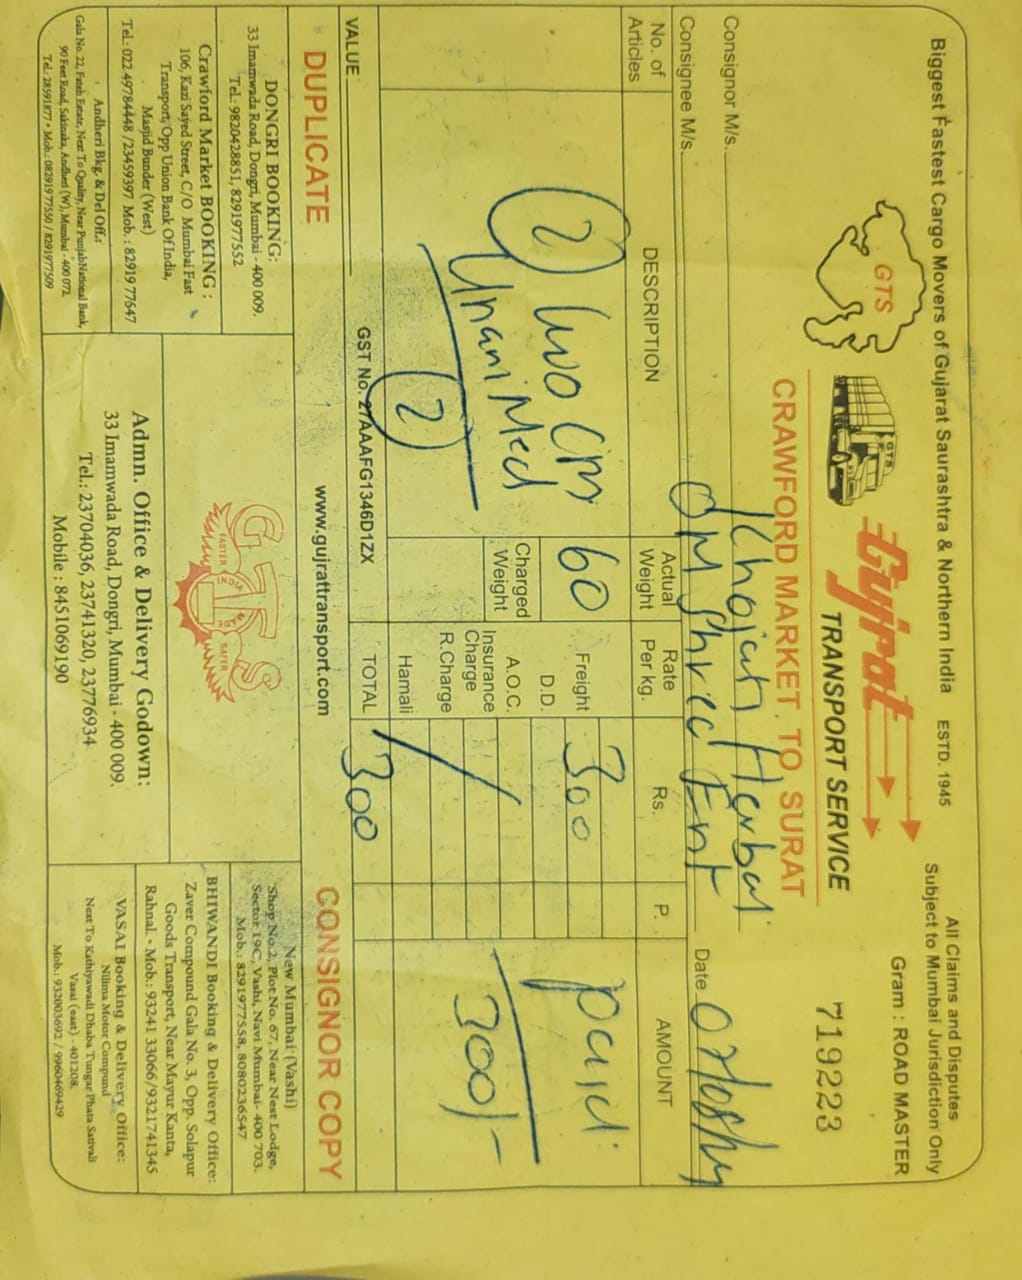 Biggest Fastest Cargo Movers of Gujarat Saurashtra & Northern India ESTD. 1945
All Claims and Disputes
Subject to Mumbai Jurisdiction Only
Gram : ROAD MASTER
GTS
GTS
Gujrat
TRANSPORT SERVICE
719223
CRAWFORD MARKET TO SURAT
Consignor M/s. Khojati Herbal
Consignee M/s. OM Shree Ent
Date
No. of Articles
DESCRIPTION
Actual Weight
Rate Per kg.
Rs.
P.
AMOUNT
2 two
60
Freight
300
paid
D.D.
Unani Med
Charged Weight
A.O.C.
Insurance Charge
300/-
R.Charge
2
Hamali
VALUE
GST No. 27AAAFG1346D1ZX
TOTAL 300
DUPLICATE
www.gujrattransport.com
CONSIGNOR COPY
DONGRI BOOKING:
33 Imamwada Road, Dongri, Mumbai - 400 009.
Tel.: 9820428851, 8291977552
Crawford Market BOOKING :
106, Kazi Sayed Street, C/O Mumbai Fast
Transport, Opp Union Bank Of India,
Masjid Bunder (West)
Tel.: 022 49784448 /23459397 Mob. : 82919 77647
Andheri Bkg. & Del Off.:
Gala No. 22, Fateh Estate, Next To Quality, Near PunjabNational Bank,
90 Feet Road, Sakinaka, Andheri (W), Mumbai - 400 072.
Tel.: 28591877 • Mob.: 082919 77550 / 8291977509
GTS
FASTER
INDIA
SAFER
Admn. Office & Delivery Godown:
33 Imamwada Road, Dongri, Mumbai - 400 009.
Tel.: 23704036, 23741320, 23776934
Mobile : 8451069190
New Mumbai (Vashi)
Shop No.2, Plot No. 67, Near Nest Lodge,
Sector 19C, Vashi, Navi Mumbai- 400 703.
Mob.: 8291977558, 8080236547
BHIWANDI Booking & Delivery Office:
Zaver Compound Gala No. 3, Opp. Solapur
Goods Transport, Near Mayur Kanta,
Rahnal. • Mob.: 93241 33066/9321741345
VASAI Booking & Delivery Office:
Nilima Motor Compund
Next To Kathiyawadi Dhaba Tungar Phata Sativali
Vasai (east) - 401208.
Mob.: 932003692 / 9960469429